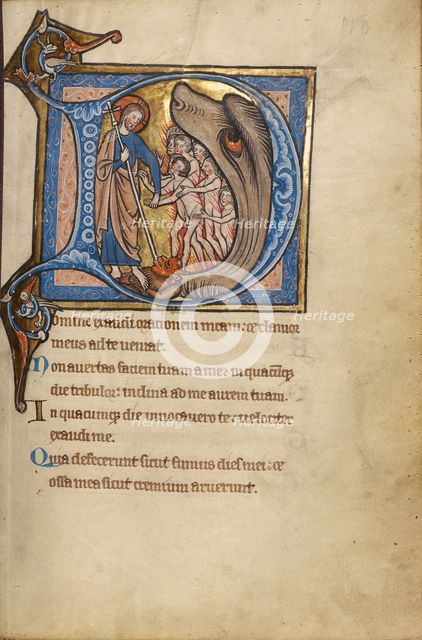 Domine exaudi orationem meam: et clamor
meus ad te veniat.
Non avertas faciem tuam a me: in quacumq;
die tribulor: inclina ad me aurem tuam.
In quacumq; die invocavero te: velociter
exaudi me.
Quia defecerunt sicut fumus dies mei: et
ossa mea sicut cremium aruerunt.
Heritage
Images